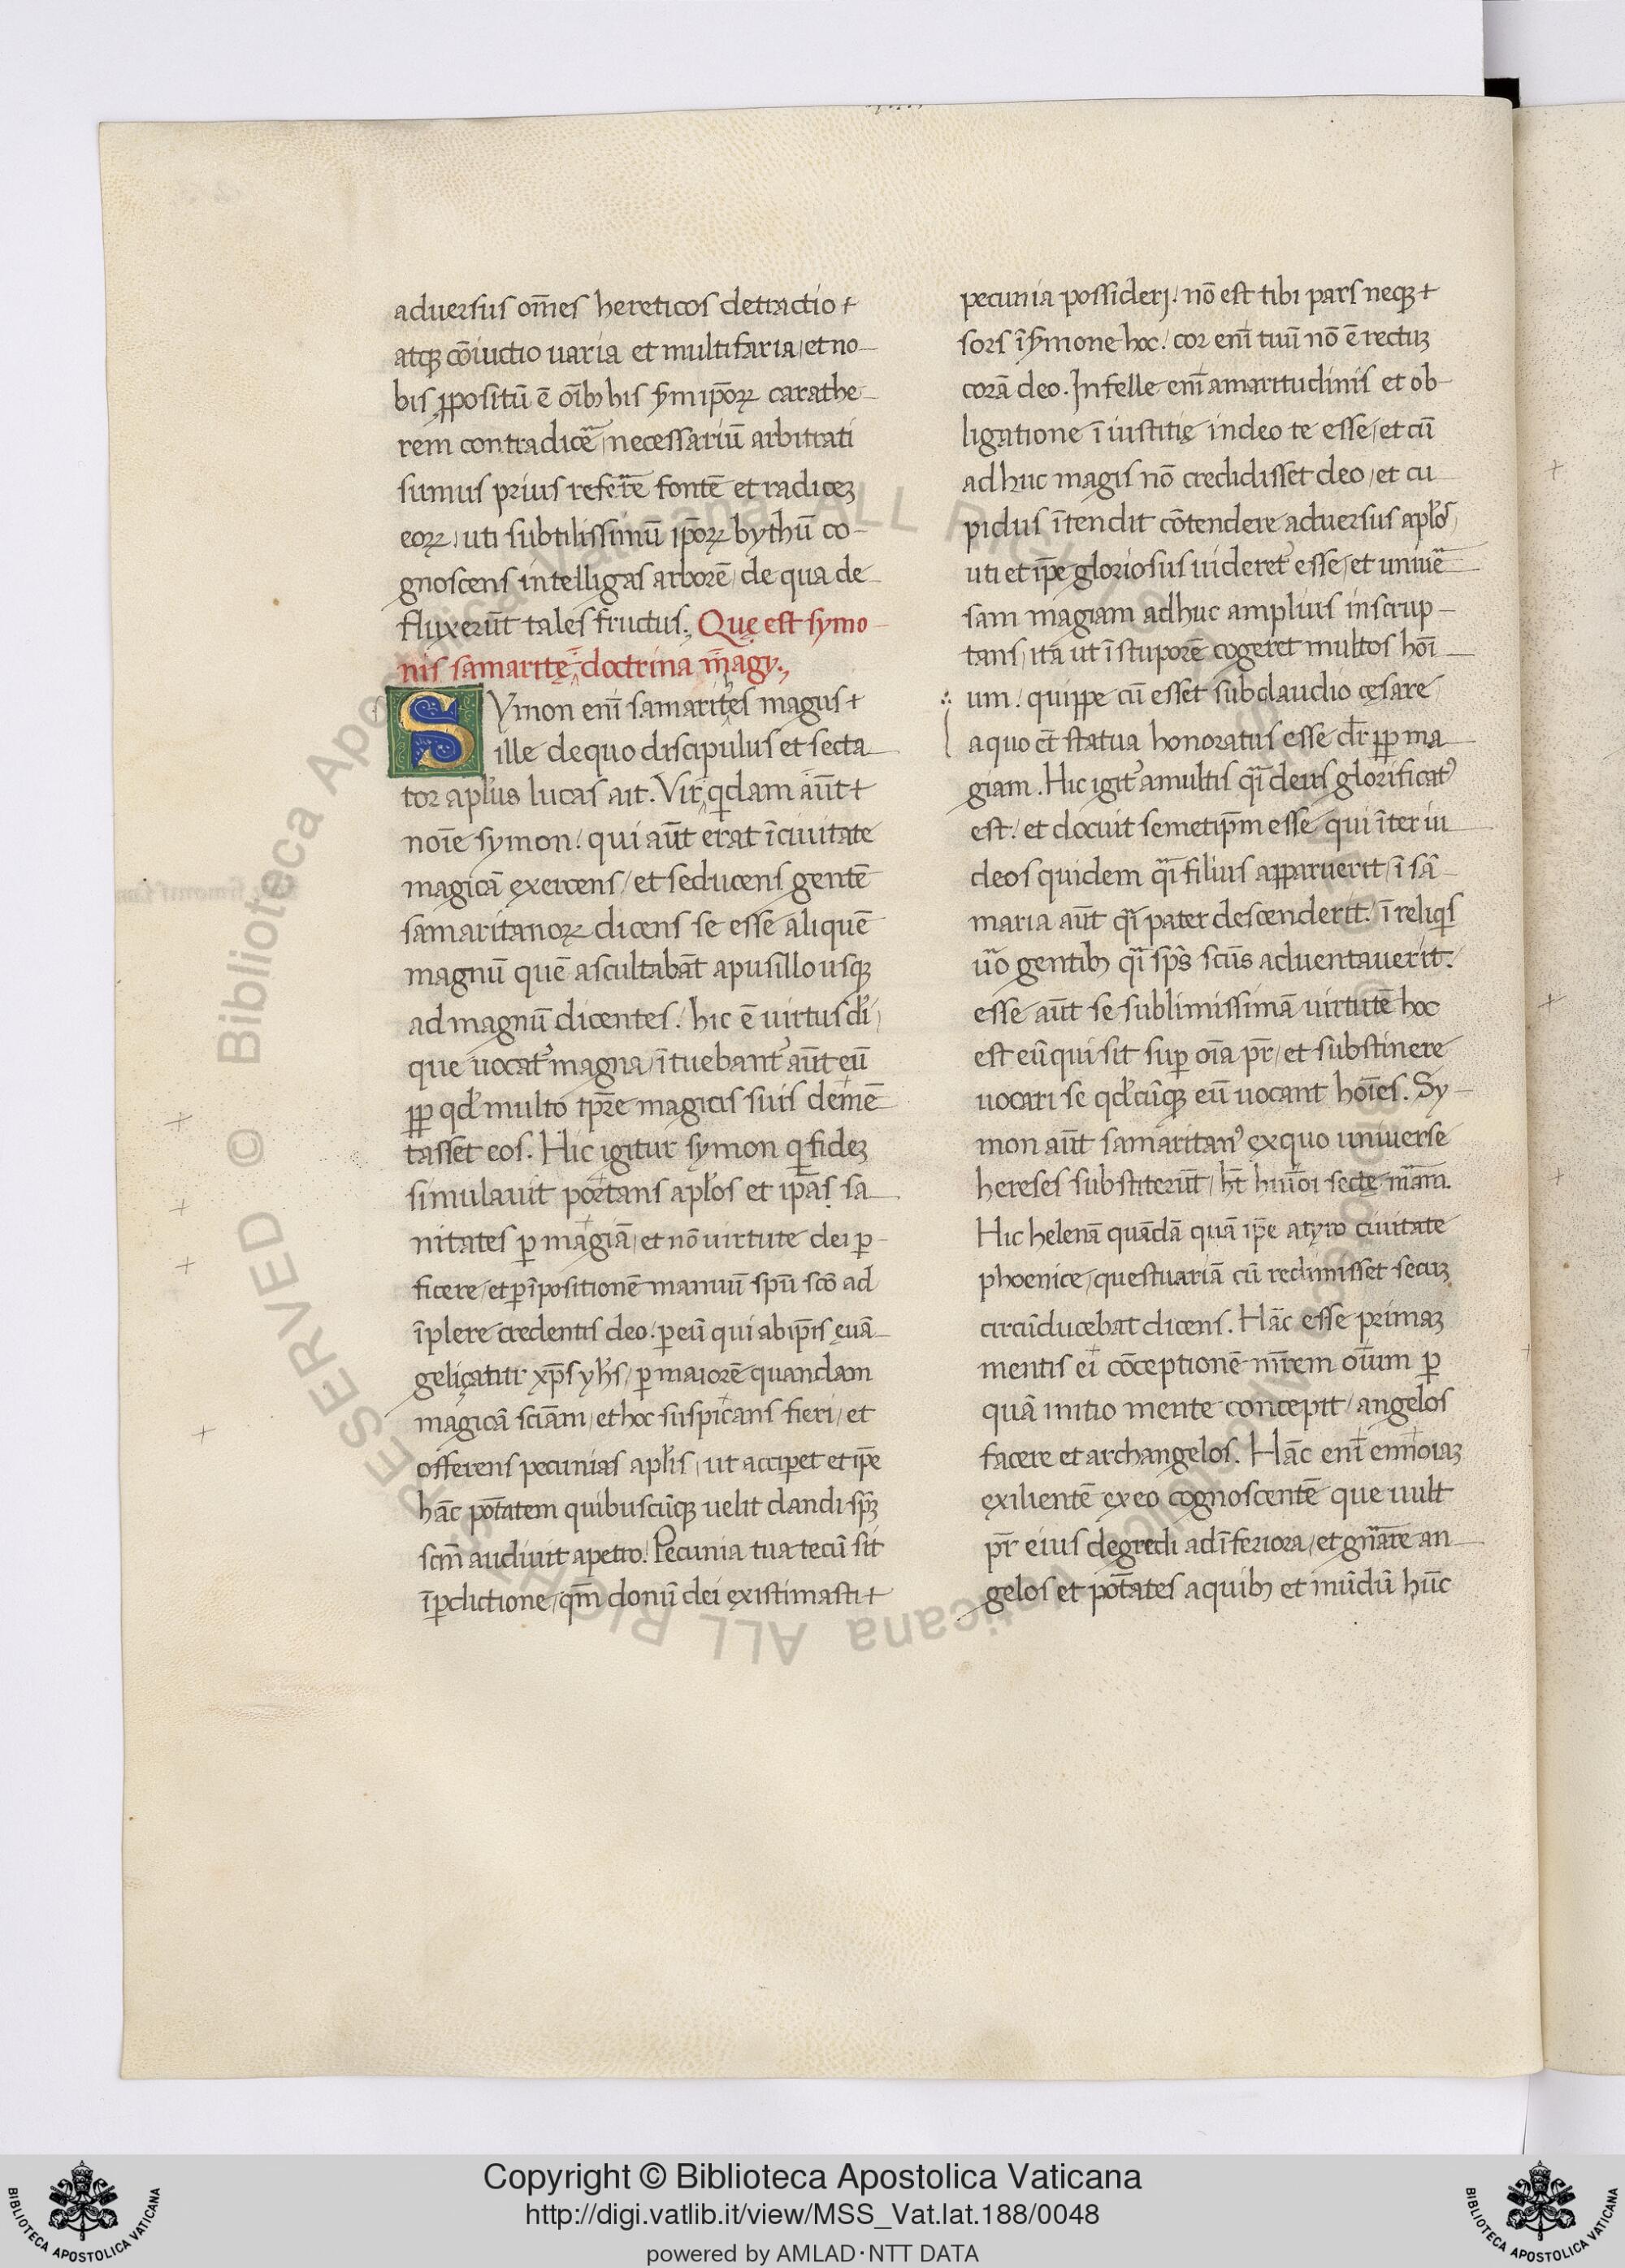 adversus om̅es hereticos detractio
atq3 co̅iuctio uaria et multifaria/et no
bis p̱positu̅ e̅ oi̅b3 his s̅m ip̅oꝝ carathe
rem contradice̅/necessariu̅ arbitrati
sumus prius refer̅e fonte̅ et radice3
eoꝝ/uti subtilissimu̅ ip̅oꝝ bythu̅ co
gnoscens intelligas arbore̅/de qua de
fluxeru̅t tales fructus. Quę est symo
nis samaritę doctrina magy.
SYmon eni̅ samarites magus
ille de quo discipulus et secta
tor apl'us lucas ait. Vir qdam au̅t
noi̅e symon/ qui au̅t erat i̅ ciuitate
magica̅ ęxercens/et seducens gente̅
samaritanoꝝ dicens se esse alique̅
magnu̅ que̅ ascultaba̅t apusillo usq3
ad magnu̅ dicentes/ hic e̅ uirtus di̅/
que uocat᷒ magna/i̅tuebant᷒ au̅t eu̅
ꝓp qd' multo tp̅re magicis suis deme̅
tasset eos. Hic igitur symon q fide3
simulauit portans apl'os et ip̅as sa
nitates ꝑ magia̅/et no̅ uirtute dei ꝑ
ficere/et ꝑ i̅positione̅ manuu̅ spu̅ sco̅ ad
i̅plere credentis deo. ꝑ eu̅ qui ab ip̅is eua̅
geliçatur xp̅s yh's/ꝑ maiore̅ quandam
magica̅ scia̅m/et hoc suspicans fieri/et
offerens pecunias apl'is/ut accipet et ip̅e
ha̅c po̅tatem quibuscu̅q3 uelit dandi sp̅3
scm̅ audiuit apetro/ Pecunia tua tecu̅ sit
i̅ꝑditione/qm̅ donu̅ dei ęxistimasti
pecunia possideri/ no̅ est tibi pars neq3
sors i̅ s̅ymone hoc/ cor eni̅ tuu̅ no̅ e̅ rectu3
cora̅ deo. In felle eni̅ amaritudinis et ob
ligatione i̅iustitię indeo te esse/et cu̅
adhuc magis no̅ credidisset deo/et cu
pidus i̅tendit co̅tendere aduersus apl'os/
uti et ip̅e gloriosus uideret᷒ esse/et uniue̅
sam magiam adhuc amplius inscrup
tans/ita ut i̅ stupore̅ cogeret multos ho̅i
um/ quippe cu̅ esset sub claudio cęsare
a quo et̅ statua honoratus esse dr̅ ꝓp ma
giam. Hic igit᷒ amultis q̅i deus glorificat᷒
est/ et docuit semetip̅m esse qui i̅ter iu
deos quidem q̅i filius apparuerit/i̅ sa̅
maria au̅t q̅i pater descenderit/ i̅ reliqs
u̅o gentib3 q̅i sp̅s scu̅s aduentauerit/
esse au̅t se sublimissima̅ uirtute̅ hoc
est eu̅ qui sit suꝑ oi̅a pr̅/et substinere
uocari se qd'cu̅q3 eu̅ uocant hoi̅es. Sy
mon au̅t samaritan᷒ ęxquo uniuerse
hereses substiteru̅t/ h̅t hui̅oi secte ma̅m.
Hic helena̅ qua̅da̅ qua̅ ip̅e atyro ciuitate
phoenice/questuaria̅ cu̅ redimisset secu3
circu̅ducebat dicens. Ha̅c esse prima3
mentis ei co̅ceptione̅ mr̅em oi̅um ꝑ
qua̅ initio mente concepit/angelos
facere et archangelos. Ha̅c eni̅ ennoia3
ęxiliente̅ ęx eo cognoscente̅ que uult
pr̅ eius degredi ad i̅feriora/et gn̅are an
gelos et po̅tates a quib3 et mu̅du̅ hu̅c
Copyright © Biblioteca Apostolica Vaticana
http://digi.vatlib.it/view/MSS_Vat.lat.188/0048
powered by AMLAD·NTT DATA